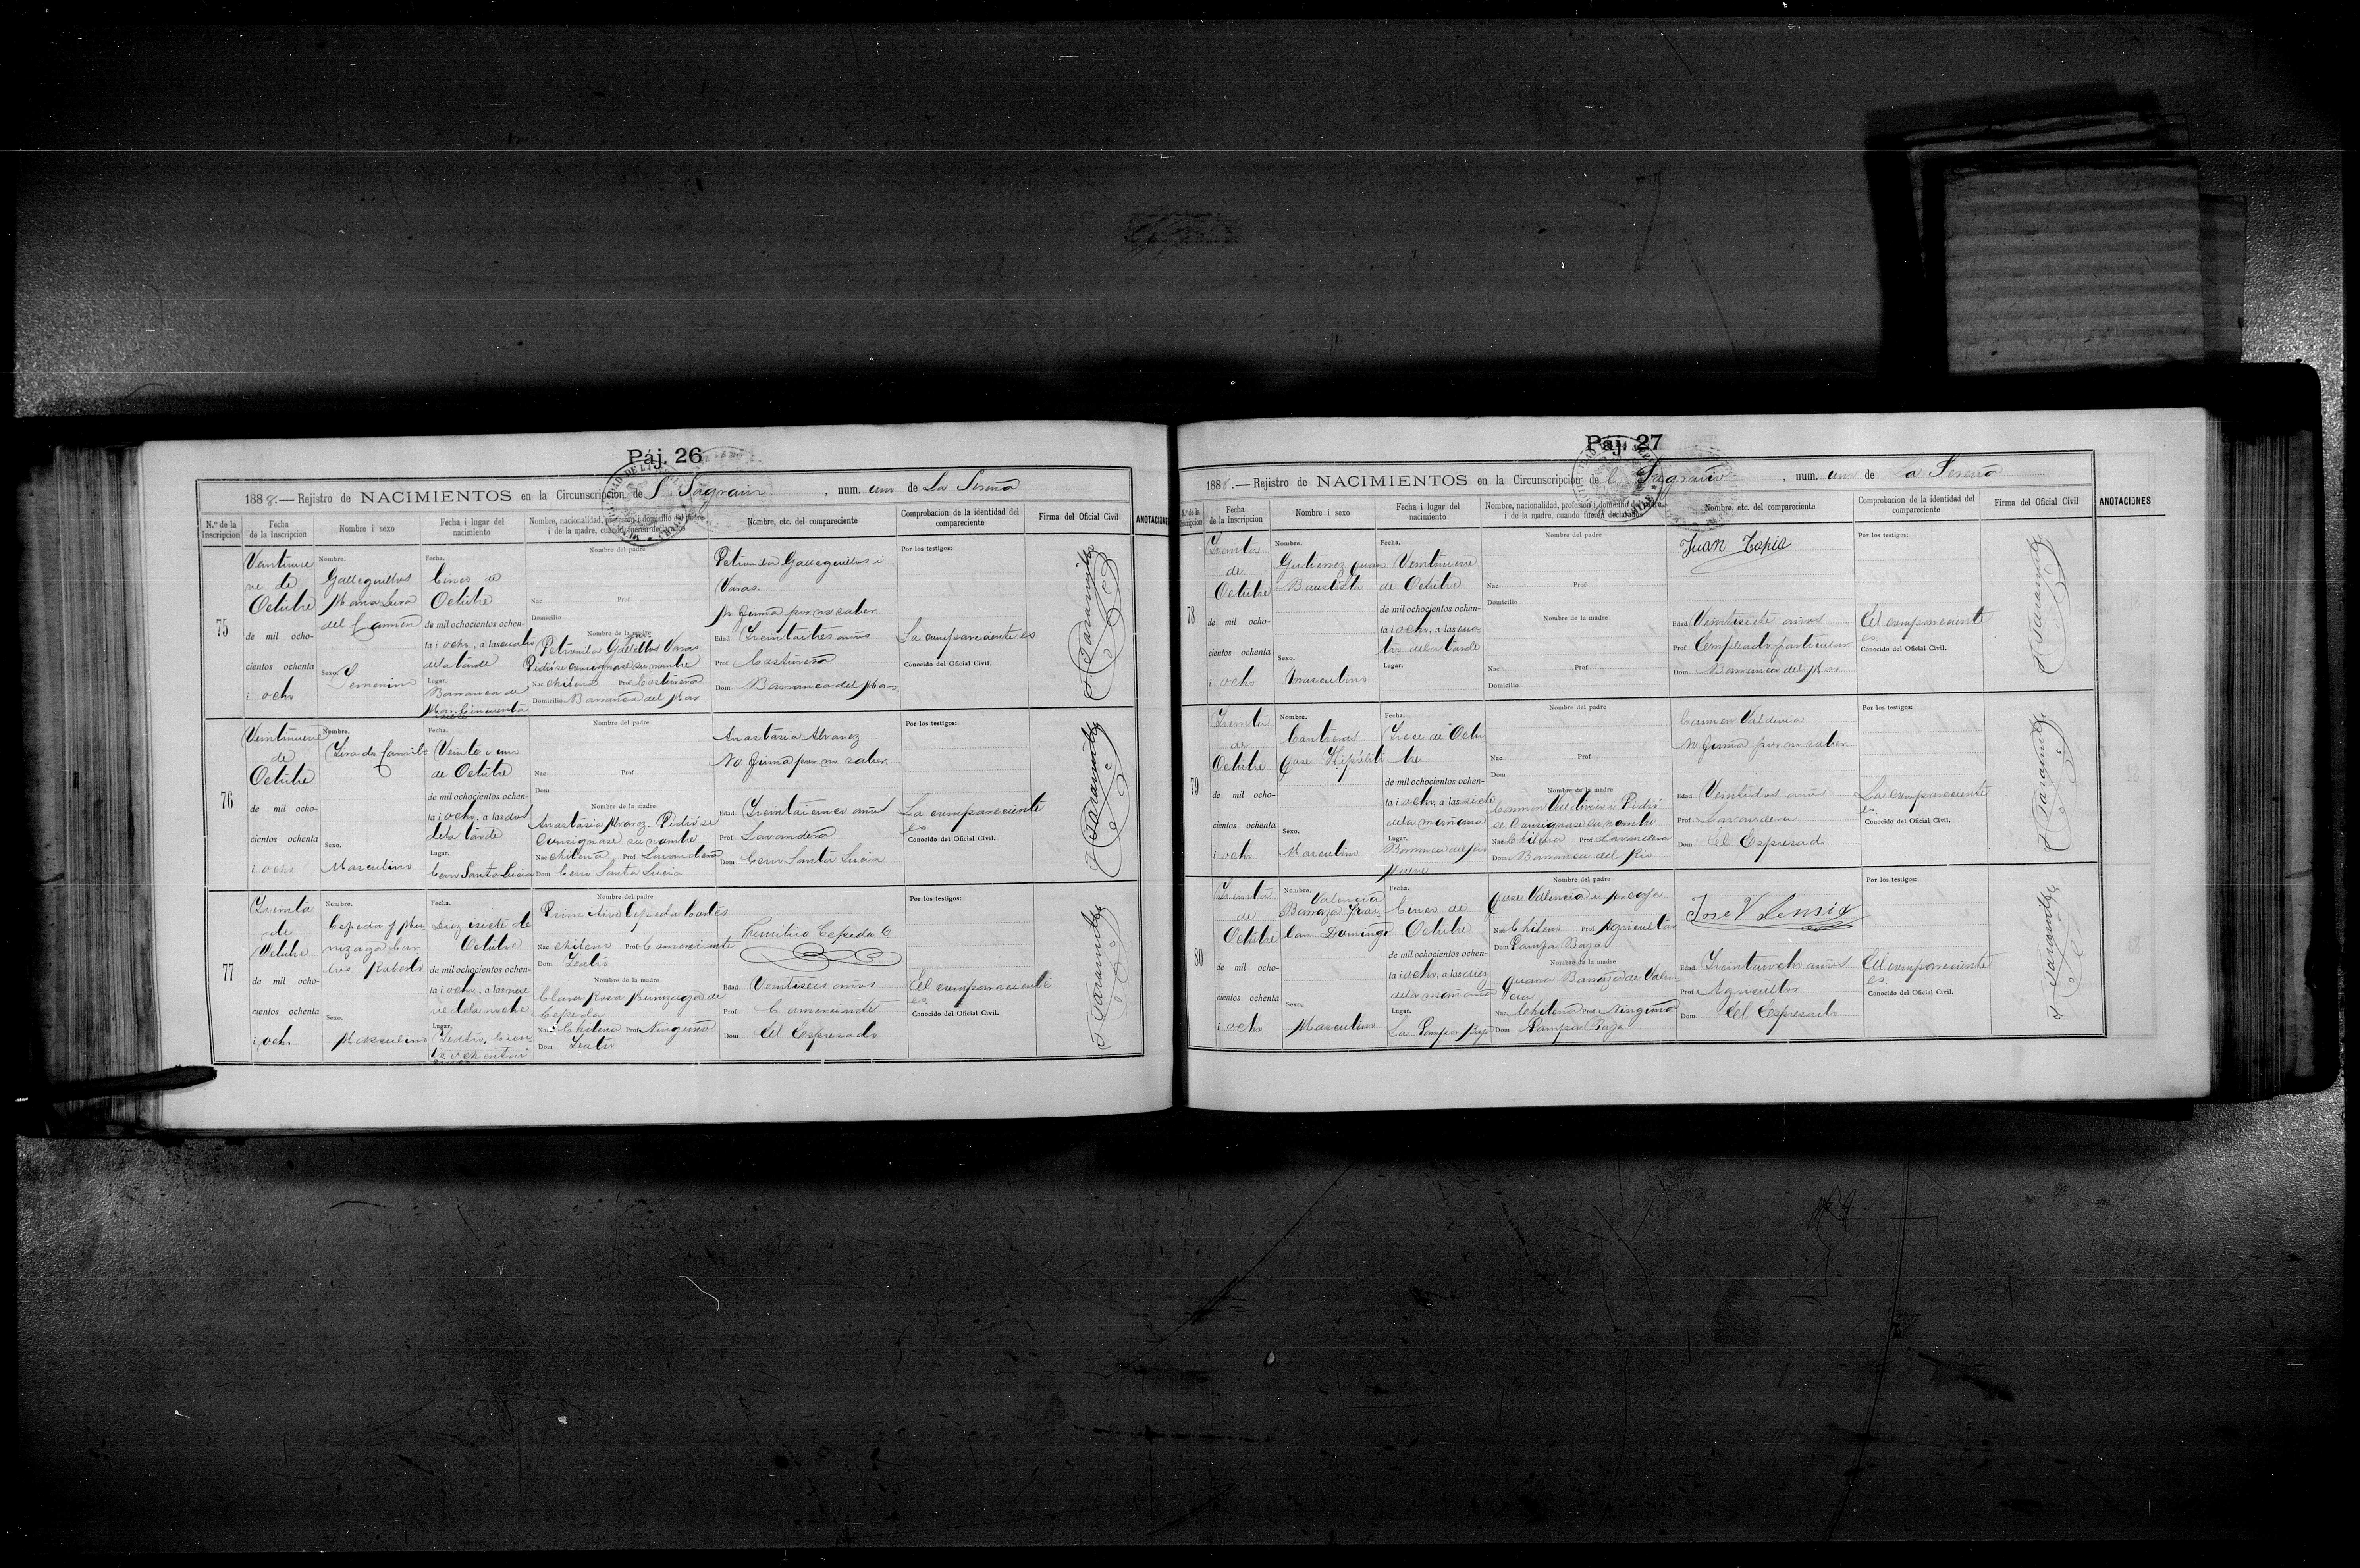 Páj. 26
1888.—Rejistro de NACIMIENTOS en la Circunscripcion de S. Sagrario, num. uno de La Serena
N.º de la Inscripcion
Fecha de la Inscripcion
Nombre i sexo
Fecha i lugar del nacimiento
Nombre, nacionalidad, profesion i domicilio del padre i de la madre, cuando fueren declarados
Nombre, etc. del compareciente
Comprobacion de la identidad del compareciente
Firma del Oficial Civil
ANOTACIONES
75
Veintinue
ve de
Octubre
de mil ocho-
cientos ochenta
i ocho
Nombre.
Galleguillos
Maria Luisa
del Carmen
Sexo.
Femenino
Fecha.
Cinco de
Octubre
de mil ochocientos ochen-
ta i ocho, a las cuatro
de la tarde
Lugar.
Barranca del
Mar, Cincuenta
Nombre del padre
Nac Prof
Domicilio
Nombre de la madre
Petronila Galleguillos Varas
Pidió se consignase su nombre
Nac chilena Prof Costurera
Domicilio Barranca del Mar
Petronila Galleguillos i
Varas.
No firma por no saber.
Edad Treintaitres años
Prof Costurera
Dom Barranca del Mar
Por los testigos:
La compareciente es
Conocido del Oficial Civil.
76
Veintinueve
de
Octubre
de mil ocho-
cientos ochenta
i ocho
Nombre.
Camilo
Sexo.
Masculino
Fecha.
Veinte i uno
de Octubre
de mil ochocientos ochen-
ta i ocho, a las dos
de la tarde
Lugar.
Cerro Santa Lucia
Nombre del padre
Nac Prof
Dom
Nombre de la madre
Anastasia Alvarez. Pidió se
consignase su nombre
Nac chilena Prof Lavandera
Dom Cerro Santa Lucia
Anastasia Alvarez
No firma por no saber.
Edad Treintaicinco años
Prof Lavandera
Dom Cerro Santa Lucia
Por los testigos:
La compareciente
es
Conocido del Oficial Civil.
77
Treinta
de
Octubre
de mil ocho-
cientos ochenta
i ocho
Nombre.
Cepeda y Mu
nizaga Car
los Roberto
Sexo.
Masculino
Fecha.
Diez isiete de
Octubre
de mil ochocientos ochen-
ta i ocho, a las nue
ve de la noche
Lugar.
Teatro, Cien
to ochentai
Nombre del padre
Primitivo Cepeda Cortés
Nac chileno Prof Comerciante
Dom Teatro
Nombre de la madre
Clara Rosa Munizaga de
Cepeda
Nac Chilena Prof Ninguna
Dom Teatro
Primitivo Cepeda C
Edad Veintiseis años
Prof Comerciante
Dom El Espresado
Por los testigos:
El compareciente
es
Conocido del Oficial Civil.
Páj. 27
1888.—Rejistro de NACIMIENTOS en la Circunscripcion de El Sagrario, num. uno de La Serena
N.º de la Inscripcion
Fecha de la Inscripcion
Nombre i sexo
Fecha i lugar del nacimiento
Nombre, nacionalidad, profesion i domicilio del padre i de la madre, cuando fueren declarados
Nombre, etc. del compareciente
Comprobacion de la identidad del compareciente
Firma del Oficial Civil
ANOTACIONES
78
Treinta
de
Octubre
de mil ocho-
cientos ochenta
i ocho
Nombre.
Gutierrez Juan
Bautista
Sexo.
Masculino
Fecha.
Veintinueve
de Octubre
de mil ochocientos ochen-
ta i ocho, a las cua
tro de la tarde
Lugar.
Nombre del padre
Nac Prof
Domicilio
Nombre de la madre
Nac Prof
Domicilio
Juan Tapia
Edad Veintisiete años
Prof Empleado particular
Dom Barranca del Mar
Por los testigos:
El compareciente
es
Conocido del Oficial Civil.
79
Treinta
de
Octubre
de mil ocho-
cientos ochenta
i ocho
Nombre.
Contreras
José Hipólito
Sexo.
Masculino
Fecha.
Trece de Octu
bre
de mil ochocientos ochen-
ta i ocho, a las siete
de la mañana
Lugar.
Barranca del Rio
Nueve
Nombre del padre
Nac Prof
Dom
Nombre de la madre
Carmen Valdivia i Pidió
se consignase su nombre
Nac Chilena Prof Lavandera
Dom Barranca del Rio
Carmen Valdivia
No firma por no saber
Edad Veintidos años
Prof Lavandera
Dom El Espresado
Por los testigos:
La compareciente
es
Conocido del Oficial Civil.
80
Treinta
de
Octubre
de mil ocho-
cientos ochenta
i ocho
Nombre.
Valencia
Barraza
Domingo
Sexo.
Masculino
Fecha.
Cinco de
Octubre
de mil ochocientos ochen-
ta i ocho, a las diez
de la mañana
Lugar.
La Pampa Baja
Nombre del padre
José Valencia i
Nac Chileno Prof Agricultor
Dom Pampa Baja
Nombre de la madre
Juana Barraza de Valen
cia
Nac Chilena Prof Ninguna
Dom Pampa Baja
Jose Valensia
Edad Treintaiocho años
Prof Agricultor
Dom El Espresado
Por los testigos:
El compareciente
es.
Conocido del Oficial Civil.